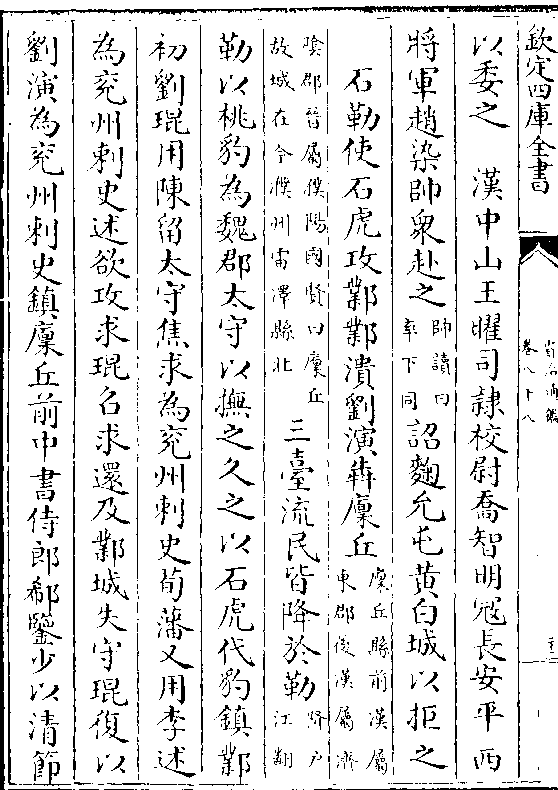 欽定四庫全書
資治通鑑
卷八十八
以委之　漢中山王曜司隷校尉喬智明冦長安平西
將軍趙染帥衆赴之帥讀曰率下同詔麴允屯黄白城以拒之
石勒使石虎攻鄴鄴潰劉演犇廩丘廩丘縣前漢屬東郡後漢屬濟
隂郡晉屬濮陽國賢曰廩丘故城在今濮州雷澤縣北三臺流民皆降於勒降户江翻
勒以桃豹為魏郡太守以撫之久之以石虎代豹鎮鄴
初劉琨用陳留太守焦求為兖州刺史荀藩又用李述
為兖州刺史述欲攻求琨召求還及鄴城失守琨復以
劉演為兖州刺史鎮廩丘前中書侍郎郗鑒少以清節